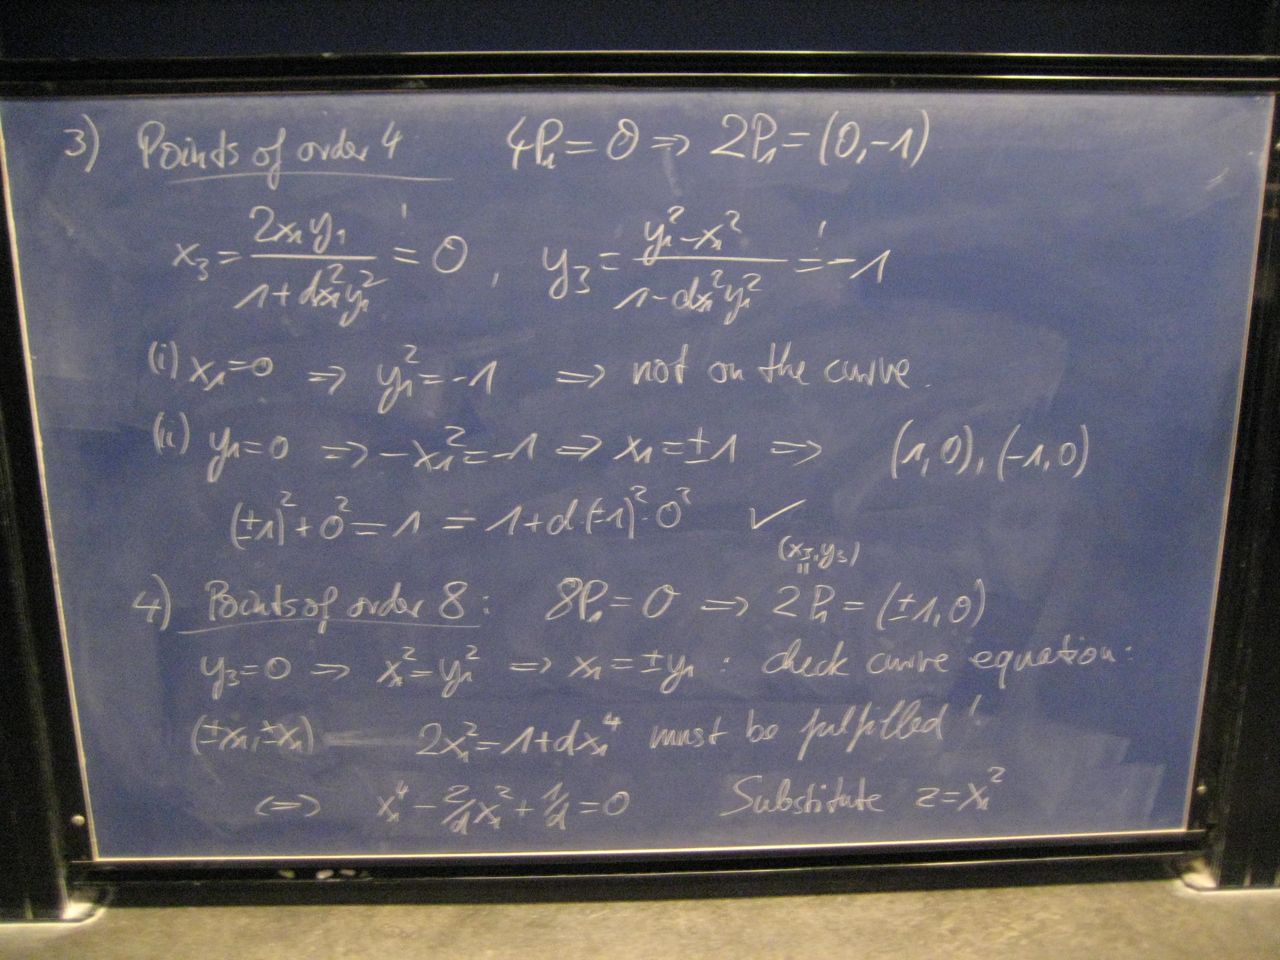 3) Points of order 4 4P₁ = O ⇒ 2P₁ = (0,-1)
x₃ = 2x₁y₁ / (1+dx₁²y₁²) =! 0 , y₃ = (y₁²-x₁²) / (1-dx₁²y₁²) =! -1
(i) x₁=0 ⇒ y₁²=-1 ⇒ not on the curve.
(ii) y₁=0 ⇒ -x₁²=-1 ⇒ x₁=±1 ⇒ (1,0),(-1,0)
(±1)²+0² = 1 = 1+d(±1)²·0² ✓
(x₃,y₃)
=
4) Points of order 8: 8P₁ = O ⇒ 2P₁ = (±1,0)
y₃=0 ⇒ x₁²=y₁² ⇒ x₁=±y₁ : check curve equation:
(±x₁,±x₁) 2x₁²=1+dx₁⁴ must be fulfilled!
⇔ x₁⁴ - 2/d x₁² + 1/d = 0 Substitute z=x₁²